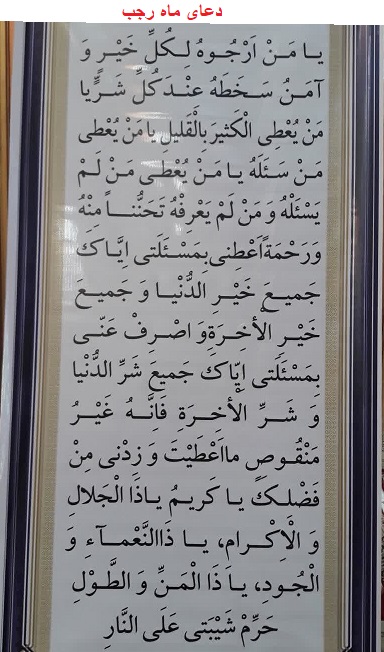 دعای ماه رجب
یا مَنْ اَرْجُوهُ لِکُلِّ خَیْرٍ وَ
آمَنُ سَخَطَهُ عِنْدَ کُلِّ شَرٍّ یا
مَنْ یُعْطِی الْکَثیرَ بِالْقَلیلِ یا مَنْ یُعْطی
مَنْ سَئَلَهُ یا مَنْ یُعْطی مَنْ لَمْ
یَسْئَلْهُ وَ مَنْ لَمْ یَعْرِفْهُ تَحَنُّناً مِنْهُ
وَ رَحْمَةً اَعْطِنی بِمَسْئَلَتی اِیَّاکَ
جَمیعَ خَیْرِ الدُّنْیا وَ جَمیعَ
خَیْرِ الْأخِرَةِ وَ اصْرِفْ عَنّی
بِمَسْئَلَتی اِیَّاکَ جَمیعَ شَرِّ الدُّنْیا
وَ شَرِّ الْأخِرَةِ فَاِنَّهُ غَیْرُ
مَنْقُوصٍ ما اَعْطَیْتَ وَ زِدْنی مِنْ
فَضْلِکَ یا کَریمُ یا ذَا الْجَلالِ
وَ الْاِکْرامِ، یا ذَا النَّعْمآءِ وَ
الْجُودِ، یا ذَا الْمَنِّ وَ الطَّوْلِ
حَرِّمْ شَیْبَتی عَلَی النَّارِ